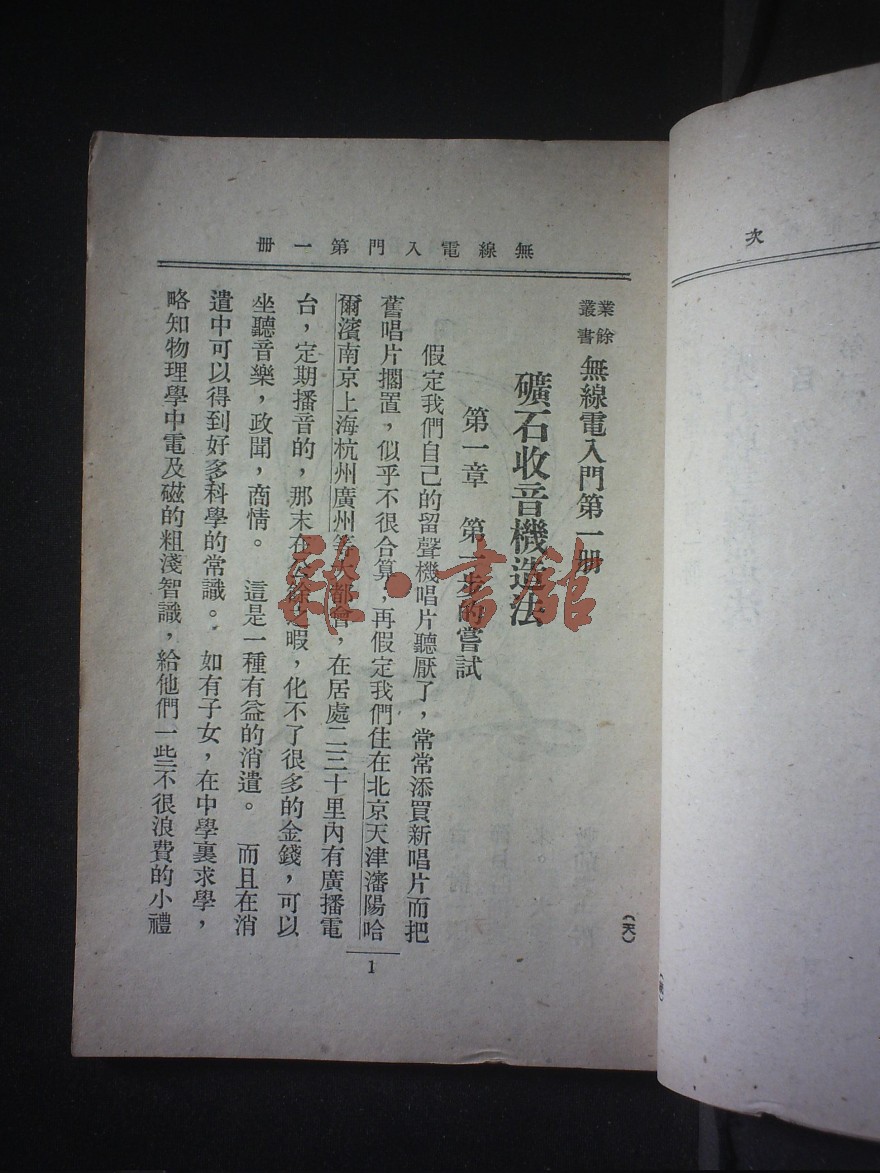 次
無線電入門第一冊
業餘
叢書
無線電入門第一冊
礦石收音機造法
第一章　第一步的嘗試
假定我們自己的留聲機唱片聽厭了，常常添買新唱片而把
舊唱片擱置，似乎不很合算，再假定我們住在北京天津瀋陽哈
爾濱南京上海杭州廣州等大都會，在居處二三十里內有廣播電
台，定期播音的，那末在公餘之暇，化不了很多的金錢，可以
坐聽音樂，政聞，商情。　這是一種有益的消遣。　而且在消
遣中可以得到好多科學的常識。　如有子女，在中學裏求學，
略知物理學中電及磁的粗淺智識，給他們一些不很浪費的小禮
1
（天）